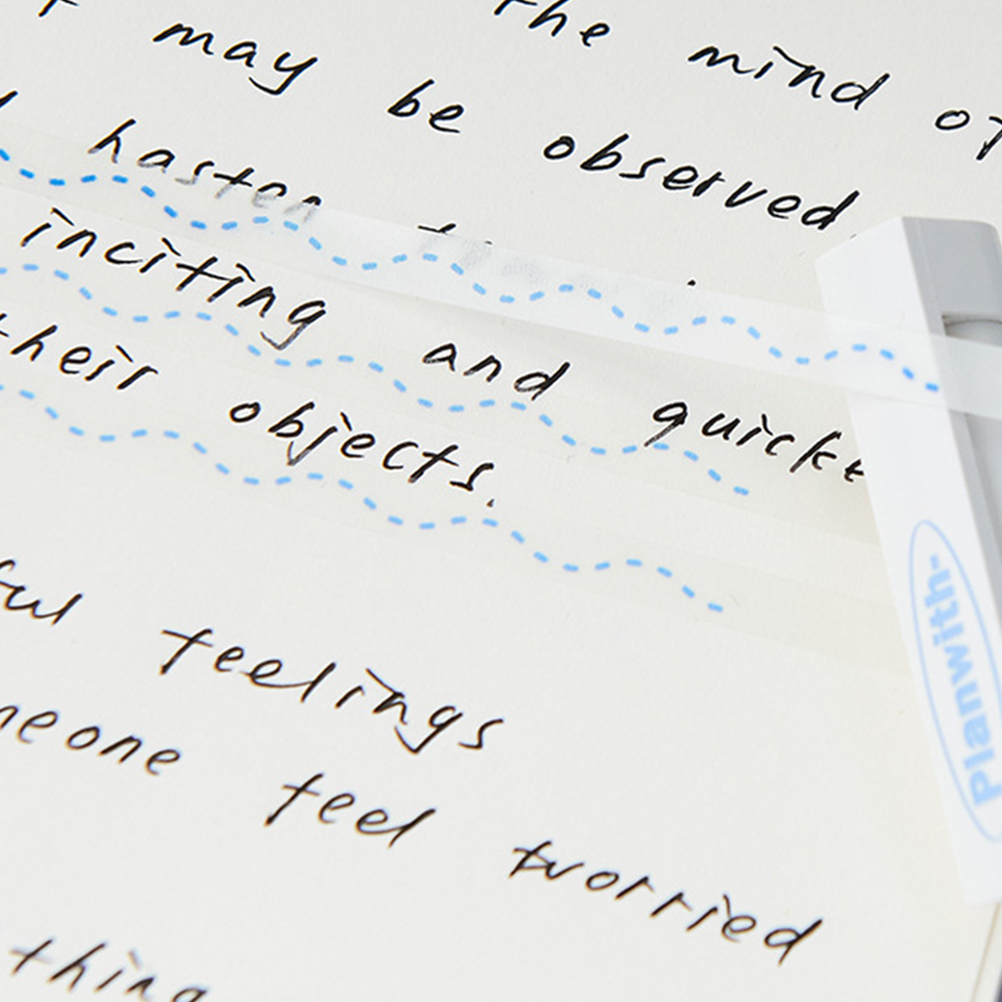 the mind of
may be observed,
hasten
inciting and quick
their objects.
feelings
feel worried
thing
Planwith-